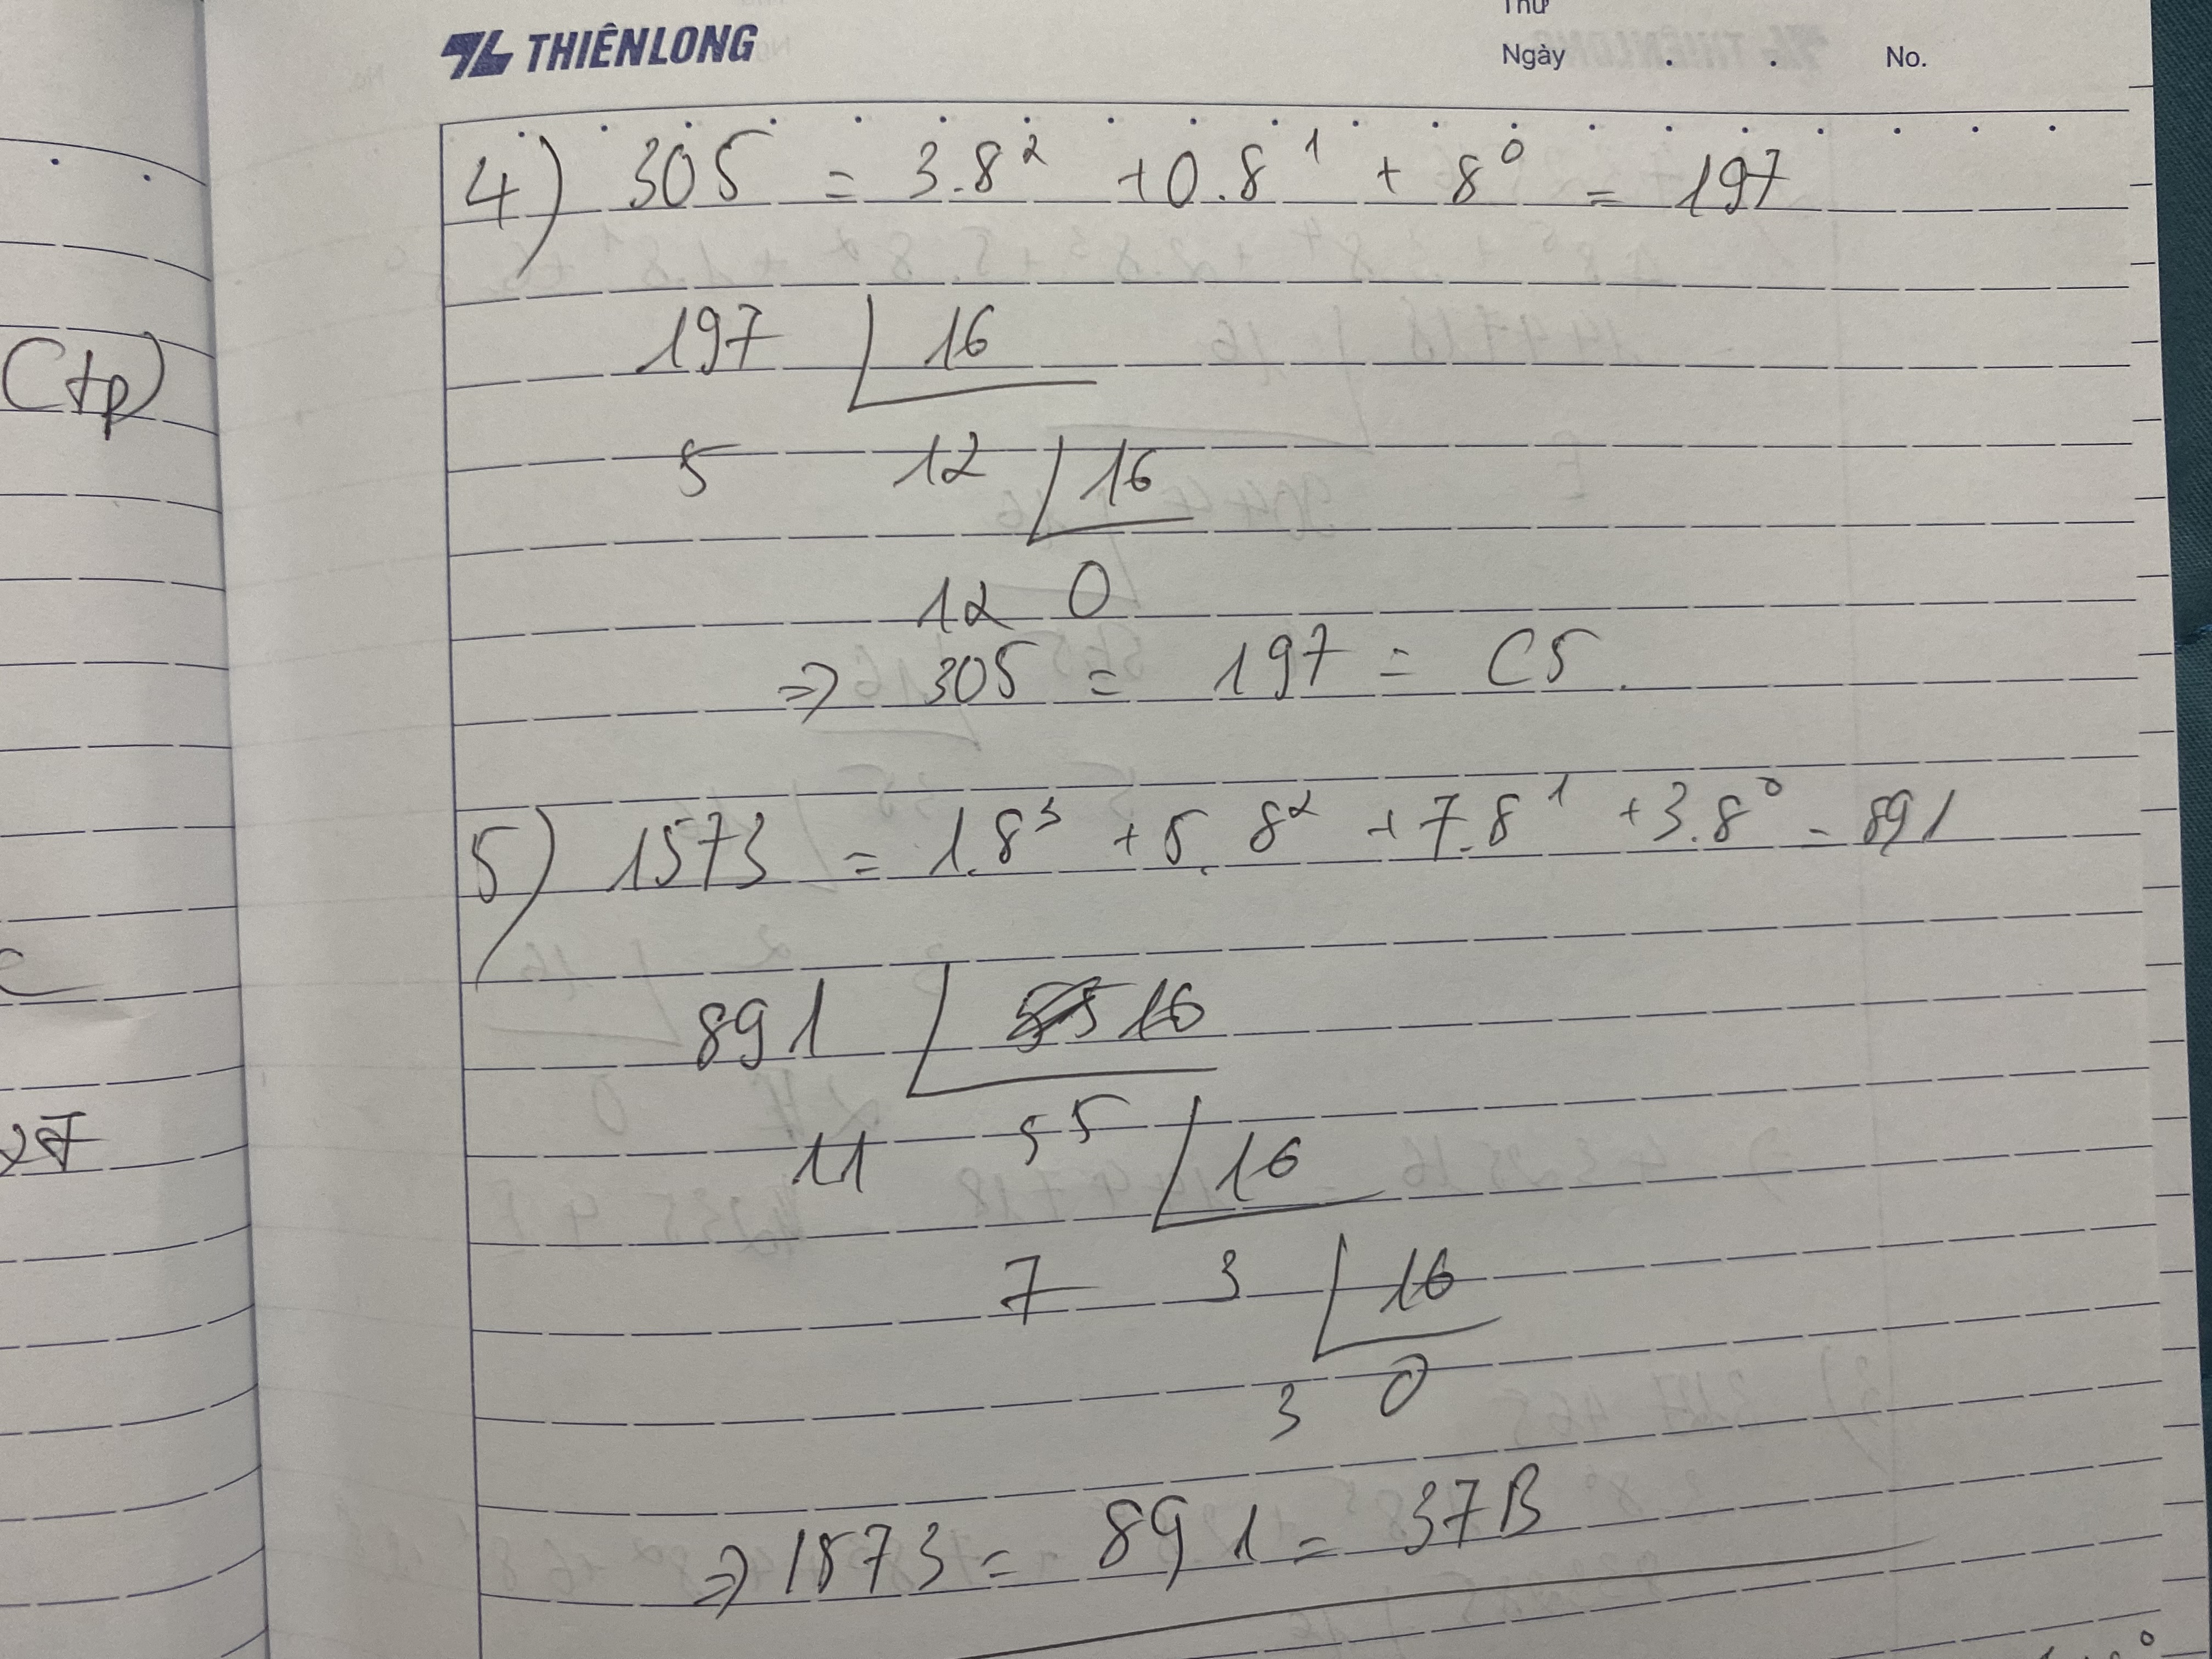 THIÊN LONG
Thứ
Ngày
No.
4) 305 = 3.8² + 0.8¹ + 8⁰ = 197
197 | 16
5 12 | 16
12 0
=> 305 = 197 = C5
5) 1573 = 1.8³ + 5.8² + 7.8¹ + 3.8⁰ = 891
891 | 16
11 55 | 16
7 3 | 16
3 0
=> 1573 = 891 = 37B